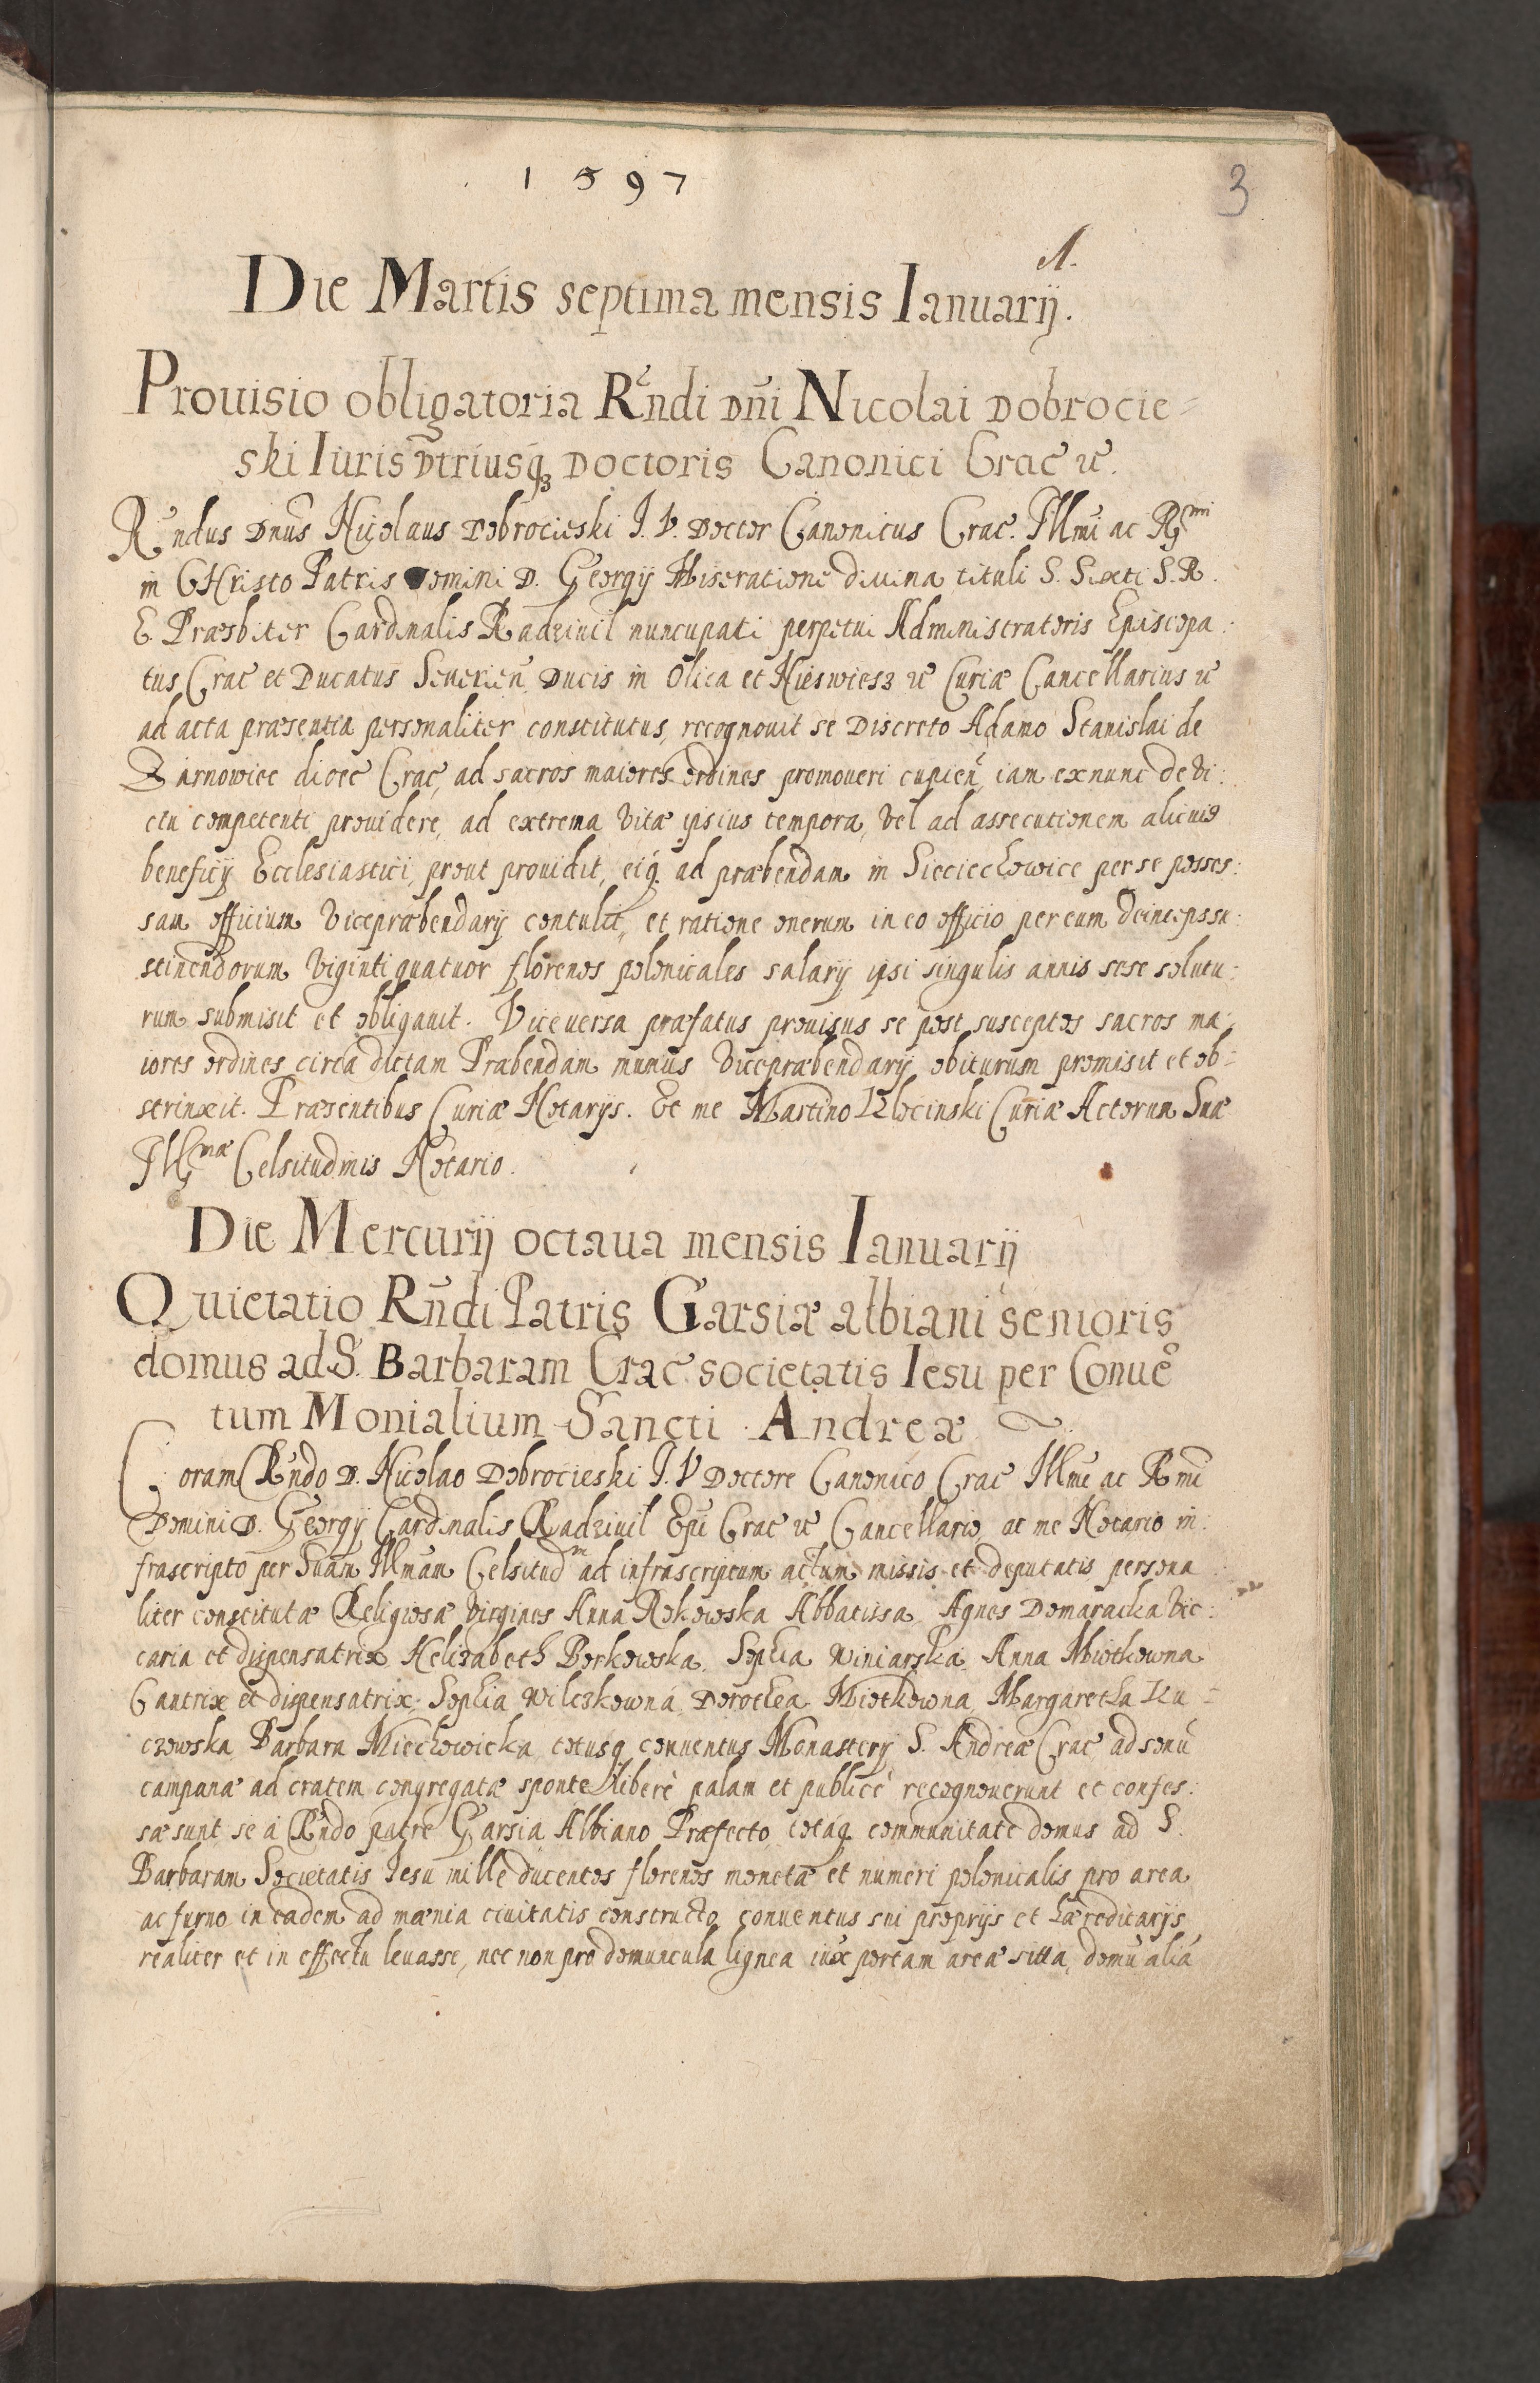 1597
3
1.
Die Martis septima mensis Ianuarij.
Prouisio obligatoria Rñdi Dñi Nicolai Dobrocie=
ski Iuris Vtriusq3 Doctoris Canonici Crac̃ &c.
Rñdus Dnus Nicolaus Dobrocieski J. V. Doctor Canonicus Crac. Illmi ac Rmi
in CHristo Patris Domini D. Georgij Miseratione diuina tituli S. Sixti S. R.
E. Præsbiter Cardinalis Radziuil nuncupati perpetui Administratoris Episcopa:
tus Crac̃ et Ducatus Seuerieñ Ducis in Olica et Nieswiesz &c Curiæ Cancellarius &c
ad acta præsentia personaliter constitutus, recognouit se Discreto Adamo Stanislai de
Zarnowiec dioec̃ Crac̃, ad sacros maiores ordines promoueri cupieñ, iam ex nunc de vi:
ctu competenti prouidere, ad extrema vitæ ipsius tempora, vel ad assecutionem alicuiꝰ
beneficij Ecclesiastici, prout prouidit, eiq́ ad præbendam in Sieciechowice per se posses:
sam officium Vicepræbendarij contulit, et ratione onerum in eo officio per eum deinceps su:
stinendorum viginti quatuor florenos polonicales salarij ipsi singulis annis sese solutu:
rum submisit et obligauit. Vice uersa præfatus prouisus se post susceptos sacros ma:
iores ordines circa dictam Præbendam munus Vicepræbendarij obiturum promisit et ob=
strinxit. Præsentibus Curiæ Notarijs. Et me Martino Klocinski Curiæ Actorum Suæ
Illmæ Celsitudinis Notario.
Die Mercurij octaua mensis Ianuarij
Quietatio Rñdi Patris Garsiæ albiani senioris
domus ad S. Barbaram Crac̃ societatis Iesu per Conuẽ
tum Monialium Sancti Andreæ
Coram Rñdo D. Nicolao Dobrocieski J. V Doctore Canonico Crac̃ Illmi ac Rmi
Domini D. Georgij Cardinalis Radziuil Epi Crac̃ &c Cancellario, ac me Notario in:
frascripto per Suam Illmam Celsitudm ad infrascriptum actum missis et deputatis persona
liter constitutæ Religiosæ virgines Anna Rokowska Abbatissa, Agnes Domaracka Vic:
caria et dispensatrix, Helizabeth Borkowska, Sophia Winiarska, Anna Miotkowna
Cantrix et dispensatrix, Sophia Wilczkowna, Dorothea Miotkowna, Margaretha Ku=
czowska, Barbara Miechowicka, totusq́ conuentus Monasterij S. Andreæ Crac̃, ad sonũ
campanæ ad cratem congregatæ sponte liberè palam et publicè recognouerunt et confes:
sæ sunt se a Rñdo patre Garsia Albiano Præfecto, totaq́ communitate domus ad S.
Barbaram Societatis Iesu mille ducentos florenos monetæ et numeri polonicalis pro area
ac furno in eadem ad mænia ciuitatis constructo, conuentus sui proprijs et hæreditarijs
realiter et in effectu leuasse, nec non pro domuncula lignea iux̃ portam areæ sitta, domũ aliã